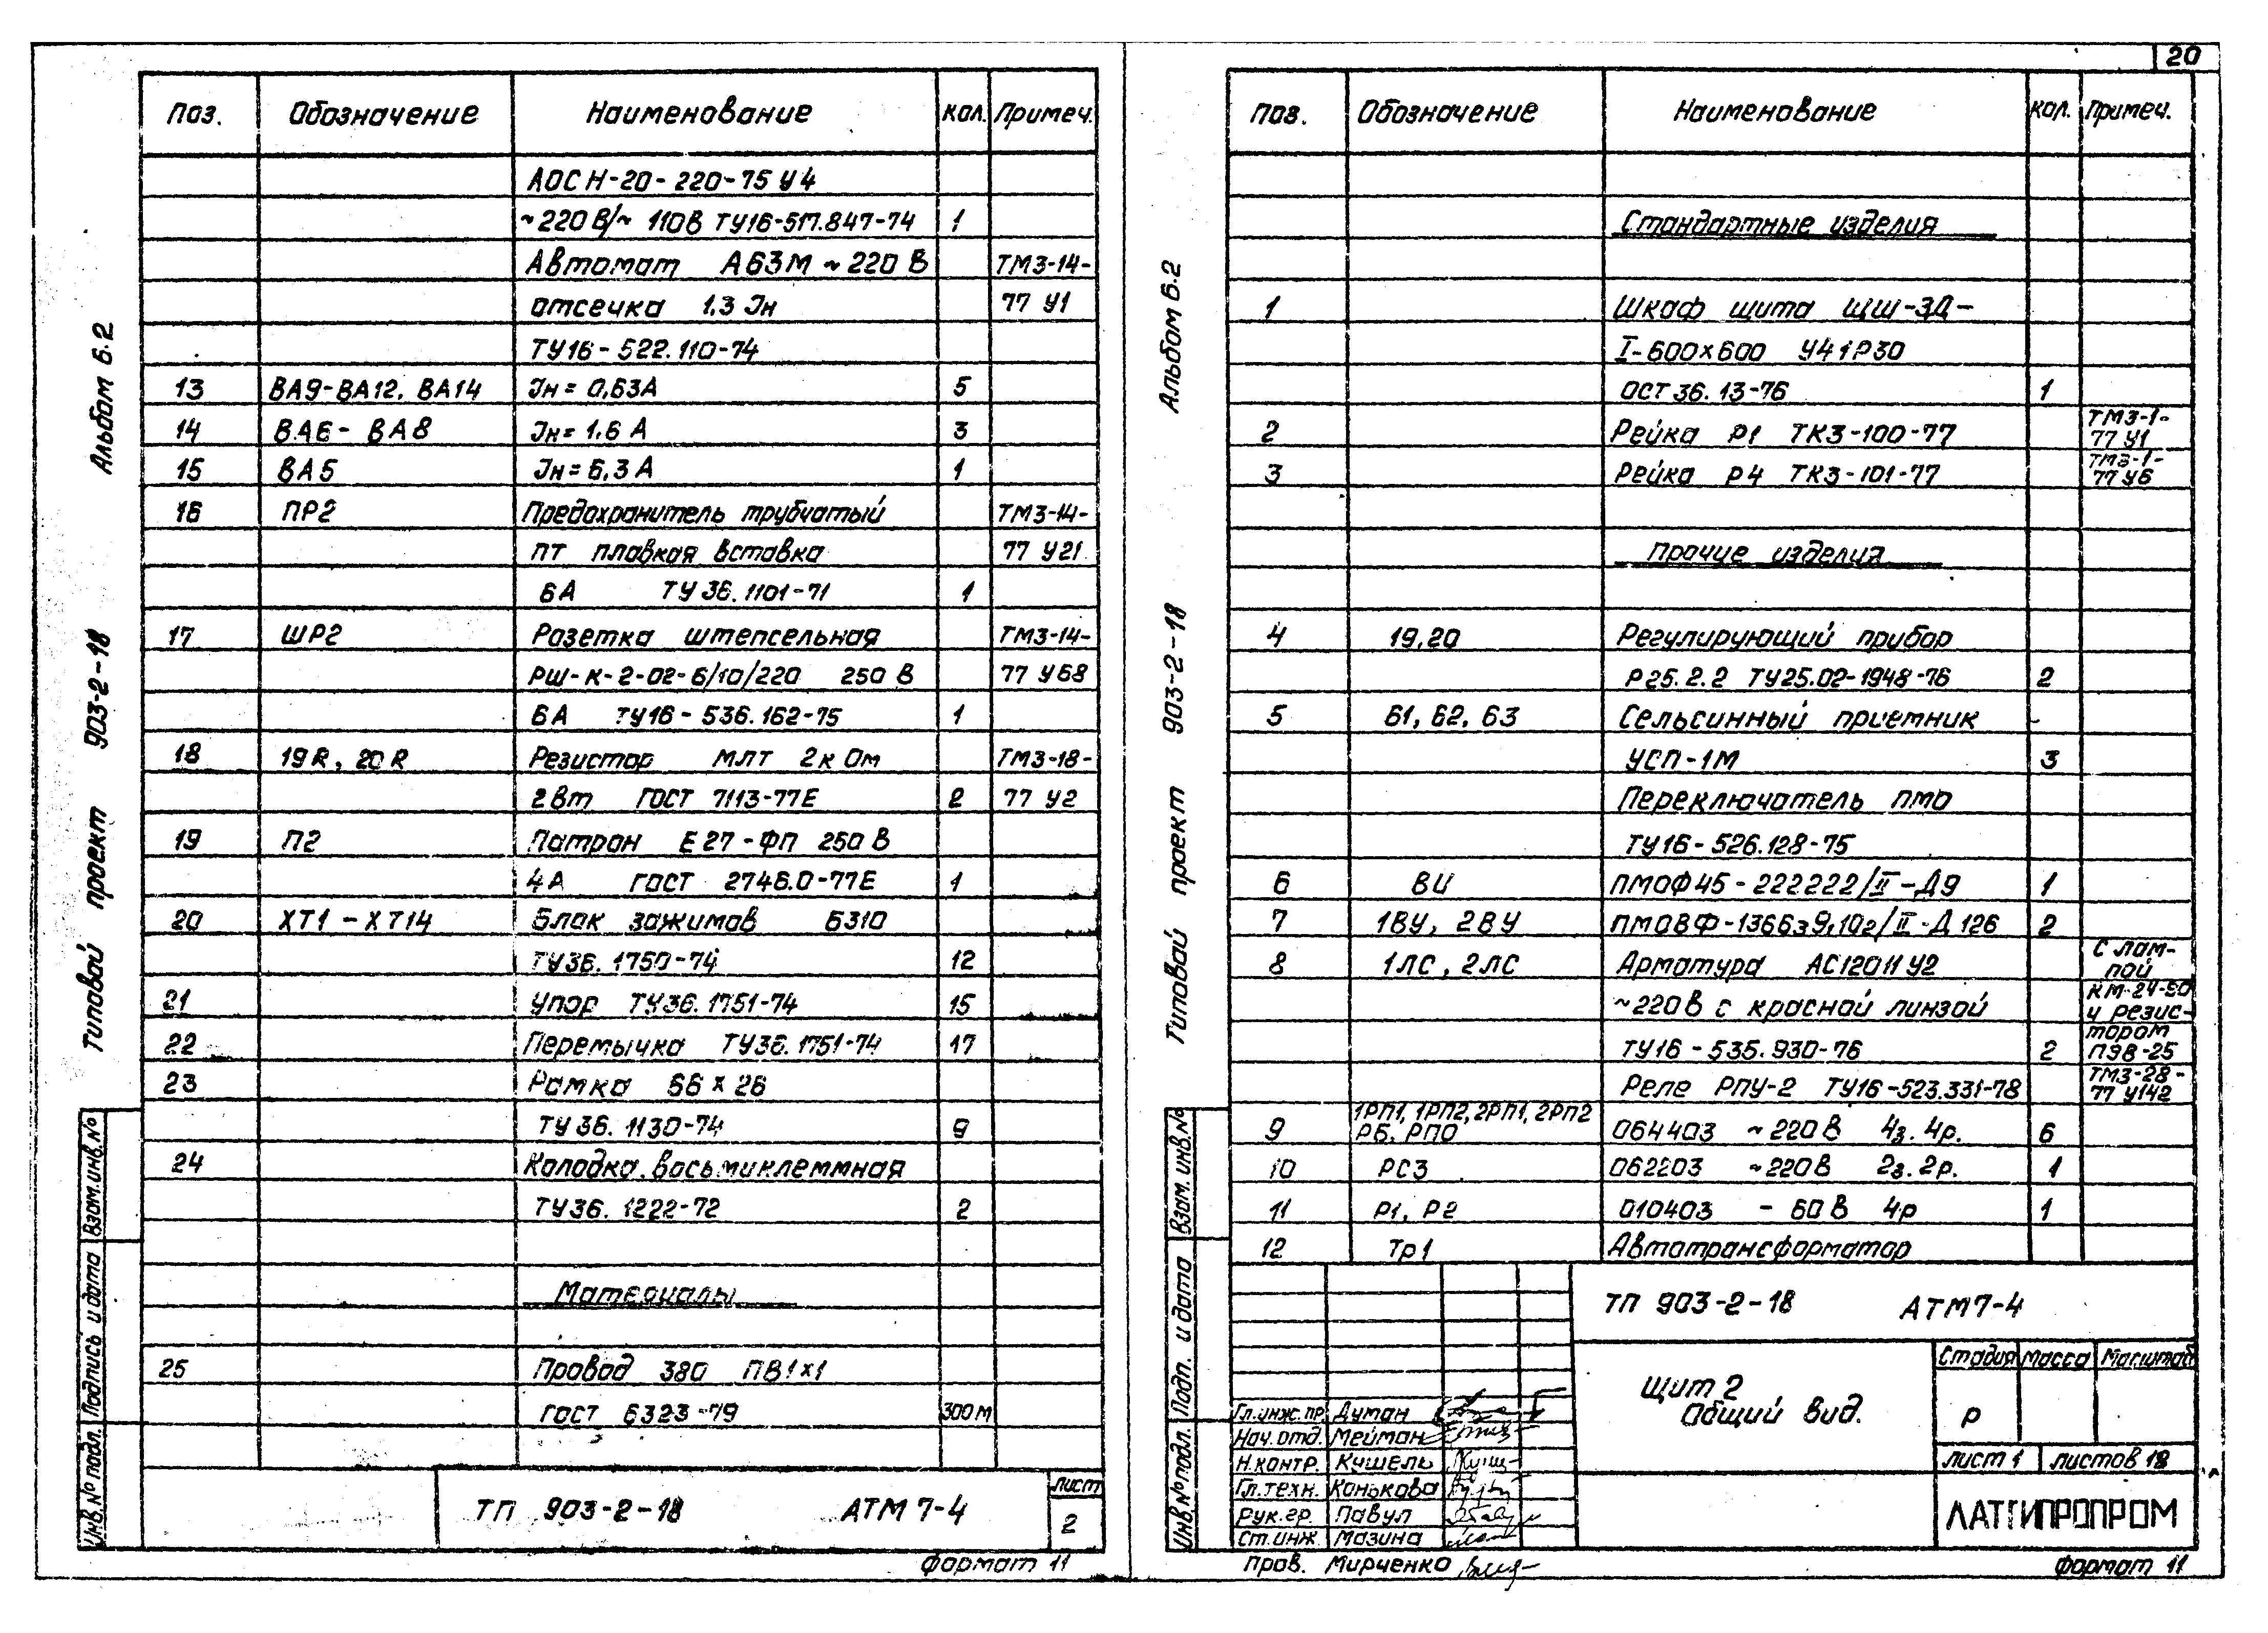 20
Альбом 6.2
Типовой проект 903-2-18
Поз. Обозначение Наименование Кол. Примеч.
АОСН-20-220-75 У4
~220В/~110В ТУ16-517.847-74 1
Автомат А63М ~220 В ТМ3-14-
отсечка 1,3 Iн 77 У1
ТУ16-522.110-74
13 ВА9-ВА12, ВА14 Iн = 0,63А 5
14 ВА6-ВА8 Iн = 1,6 А 3
15 ВА5 Iн = 6,3 А 1
16 ПР2 Предохранитель трубчатый ТМ3-14-
ПТ плавкая вставка 77 У21
6А ТУ 36.1101-71 1
17 ШР2 Розетка штепсельная ТМ3-14-
РШ-К-2-02-6/10/220 250 В 77 У68
6А ТУ16-536.162-75 1
18 19R, 20R Резистор МЛТ 2кОм ТМ3-18-
2Вт ГОСТ 7113-77Е 2 77 У2
19 П2 Патрон Е27-ФП 250 В
4А ГОСТ 2746.0-77Е 1
20 ХТ1-ХТ14 Блок зажимов Б310
ТУ36.1750-74 12
21 Упор ТУ36.1751-74 15
22 Перемычка ТУ36.1751-74 17
23 Рамка 66х26
ТУ36.1130-74 9
24 Колодка восьмиклеммная
ТУ36.1222-72 2
Материалы
25 Провод 380 ПВ1х1
ГОСТ 6323-79 300м
Взам. инв. №
Подпись и дата
Инв. № подл.
ТП 903-2-18 АТМ7-4 Лист
2
Формат 11
Альбом 6.2
Типовой проект 903-2-18
Поз. Обозначение Наименование Кол. Примеч.
Стандартные изделия
1 Шкаф щита ЩШ-ЗД-
I-600х600 У4 1Р30
ОСТ 36.13-76 1
2 Рейка Р1 ТК3-100-77 ТМ3-1-
77 У1
3 Рейка Р4 ТК3-101-77 ТМ3-1-
77 У6
Прочие изделия
4 19,20 Регулирующий прибор
Р25.2.2 ТУ25.02-1948-76 2
5 61, 62, 63 Сельсинный приемник
УСП-1М 3
Переключатель ПМО
ТУ16-526.128-75
6 ВИ ПМОФ45-222222/II-Д9 1
7 1ВУ, 2ВУ ПМОВФ-1366з9,10г/II-Д126 2
8 1ЛС, 2ЛС Арматура АС12011У2 С лам-
пой
~220В с красной линзой КМ-24-90
и резис-
ТУ16-535.930-76 2 тором
ПЭВ-25
Реле РПУ-2 ТУ16-523.331-78 ТМ3-28-
77 У142
9 1РП1, 1РП2, 2РП1, 2РП2
РБ, РПО 064403 ~220В 4з.4р. 6
10 РС3 062203 ~220В 2з.2р. 1
11 Р1, Р2 010403 - 60В 4р 1
12 Тр1 Автотрансформатор
Взам. инв. №
Подп. и дата
Инв. № подл.
ТП 903-2-18 АТМ7-4
Щит 2
Общий вид.
Стадия Масса Масштаб
Р
Лист 1 Листов 18
ЛАТГИПРОПРОМ
Гл.инж.пр. Думан
Нач.отд. Мейман
Н.контр. Кушель
Гл.техн. Конькова
Рук.гр. Павул
Ст.инж. Мазина
Пров. Мирченко
Формат 11